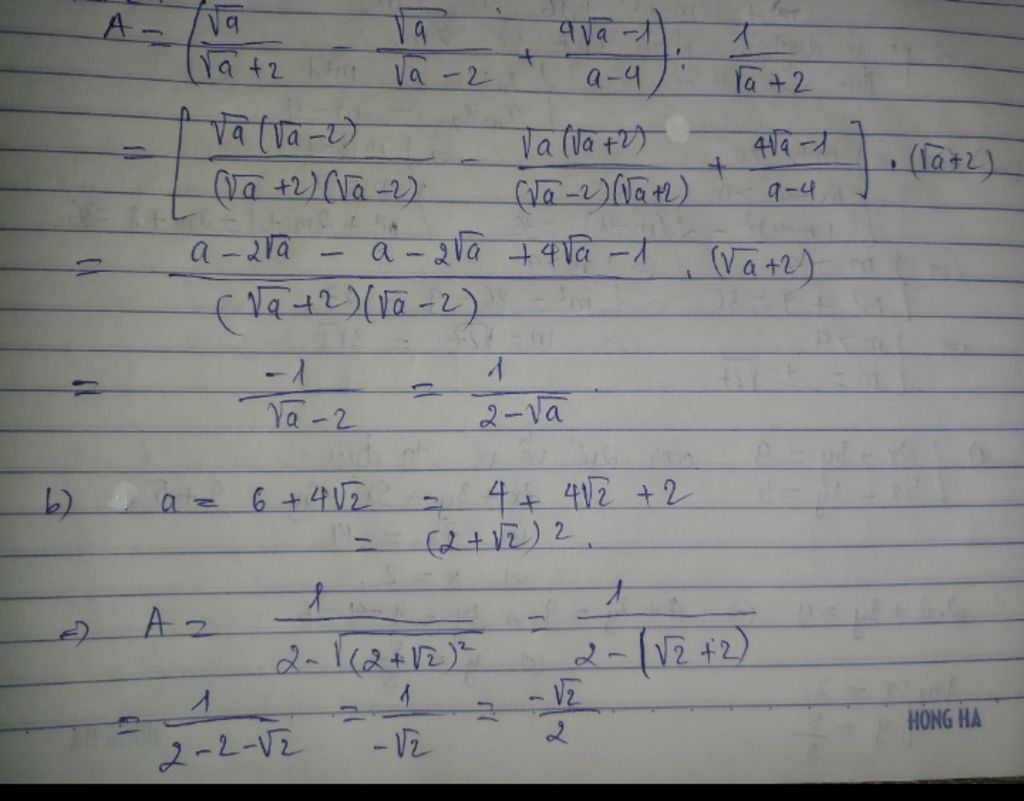 A = (√a/(√a+2) - √a/(√a-2) + (4√a-1)/(a-4)) : 1/(√a+2)
= [√a(√a-2)/((√a+2)(√a-2)) - √a(√a+2)/((√a-2)(√a+2)) + (4√a-1)/(a-4)] . (√a+2)
= (a-2√a - a-2√a +4√a-1)/((√a+2)(√a-2)) . (√a+2)
= -1/(√a-2) = 1/(2-√a)
b) a = 6+4√2 = 4+4√2+2
= (2+√2)².
=) A = 1/(2-√((2+√2)²)) = 1/(2-(√2+2))
= 1/(2-2-√2) = 1/(-√2) = -√2/2
HONG HA